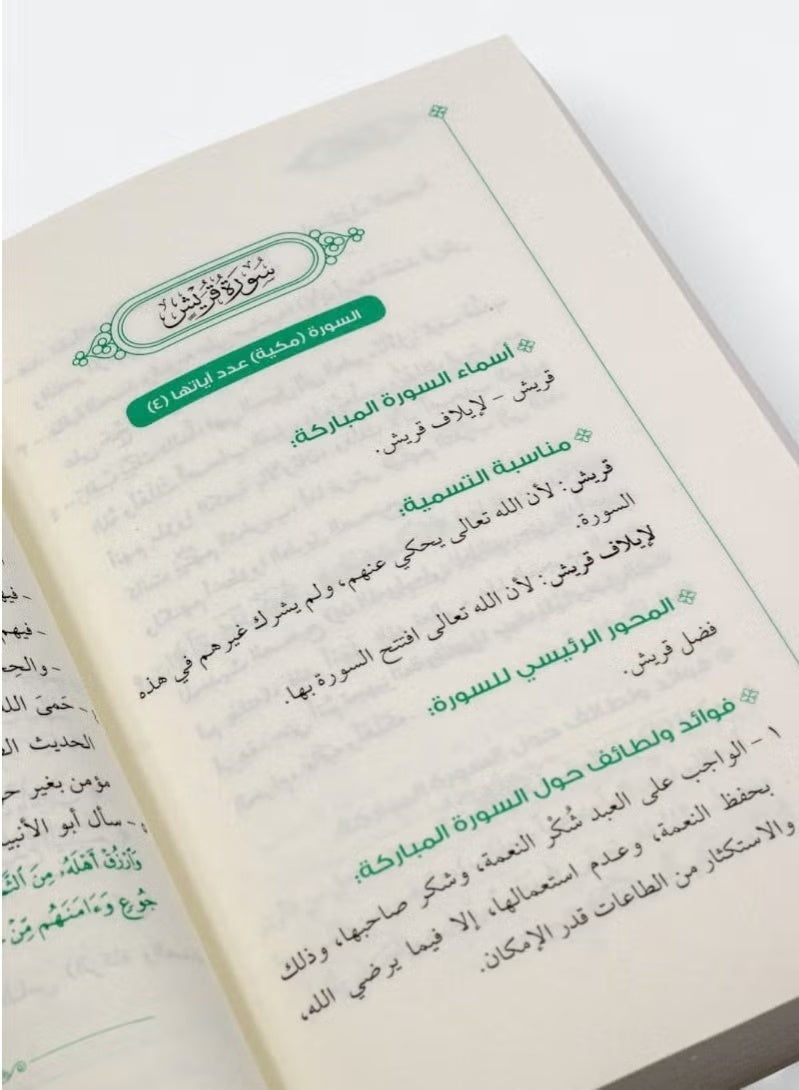 سُورَةُ قُرَيْشٍ
السورة (مكية) عدد آياتها (٤)
أسماء السورة المباركة:
قريش – لإيلاف قريش.
مناسبة التسمية:
قريش: لأن الله تعالى يحكي عنهم، ولم يشرك غيرهم في هذه
السورة.
لإيلاف قريش: لأن الله تعالى افتتح السورة بها.
المحور الرئيسي للسورة:
فضل قريش.
فوائد ولطائف حول السورة المباركة:
١ – الواجب على العبد شُكْر النعمة، وشكر صاحبها، وذلك
بحفظ النعمة، وعدم استعمالها، إلا فيما يرضي الله،
والاستكثار من الطاعات قدر الإمكان.
- فيهم
- حَمَى
الحديث
مؤمن بغير
- سأل أبو
وَٱرْزُقْ أَهْلَهُۥ مِنَ
جُوعٍ وَءَامَنَهُم مِّنْ